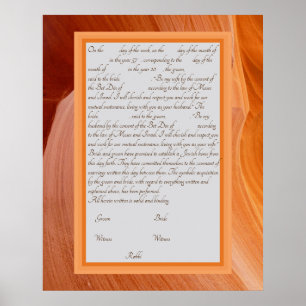 On the day of the week, on the day of the month of
in the year 57 , corresponding to the day of
the month of in the year 20 , the groom,
said to the bride, - Be my wife by the consent of
the Bet Din of according to the law of Moses
and Israel. I will cherish and respect you and work for our
mutual sustenance, living with you as your husband. The
bride, said to the groom, - Be my
husband by the consent of the Bet Din of according
to the law of Moses and Israel. I will cherish and respect you
and work for our mutual sustenance, living with you as your wife.
Bride and groom have promised to establish a Jewish home from
this day on. They have committed themselves to the covenant of
marriage written this day between them. The symbolic acquisition
by the groom and bride, with regard to everything written and
explained above, has been performed.
All herein written is valid and binding.
Groom Bride
Witness Witness
Rabbi